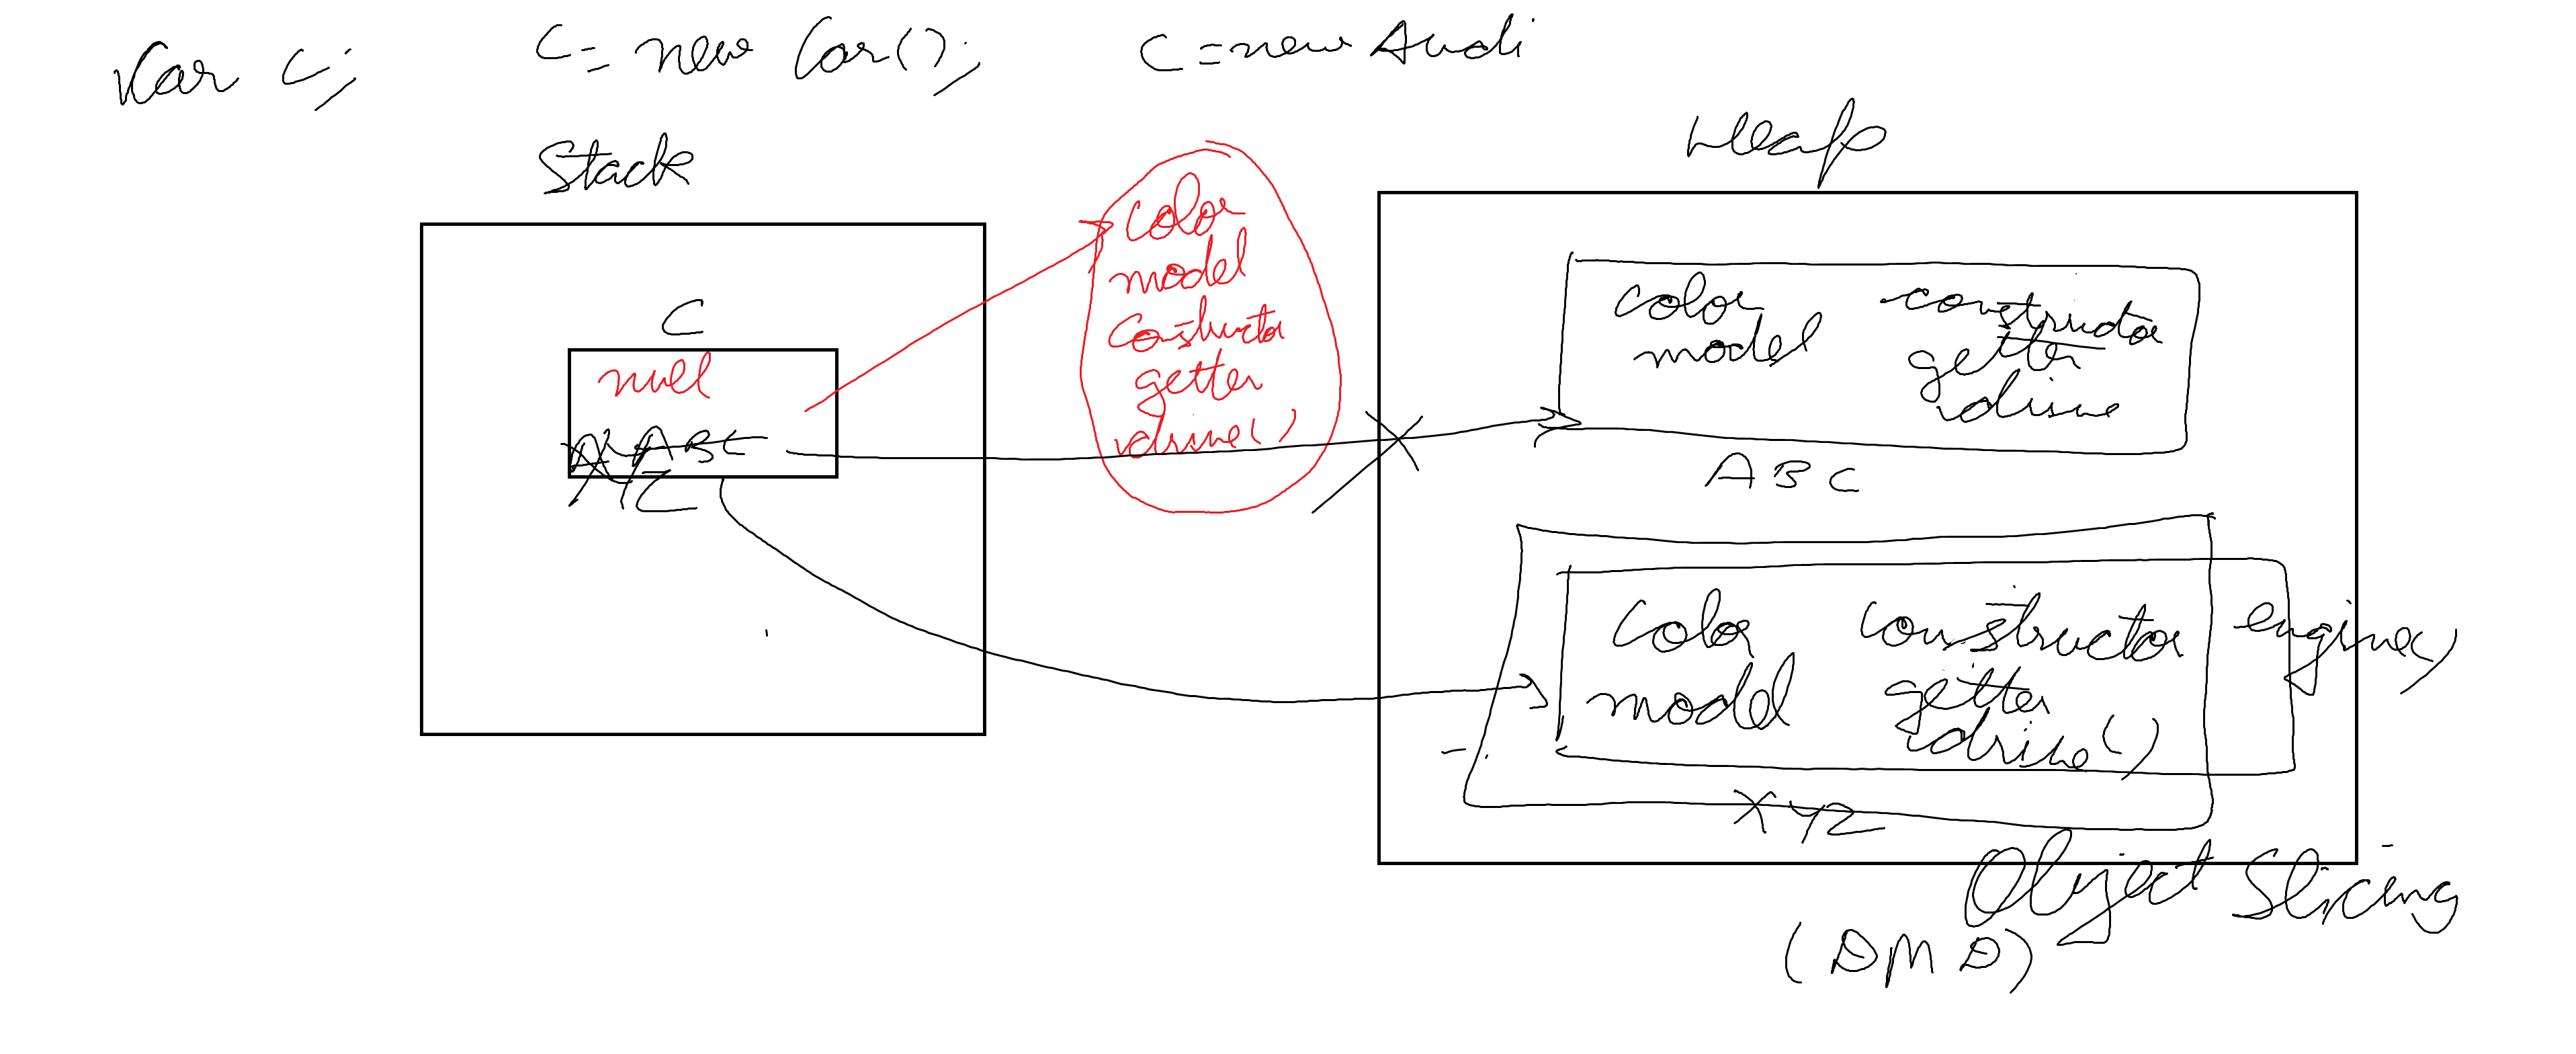 Var c;
C = new Car();
C = new Audi
Stack
Heap
C
null
ABC
XYZ
color
model
Constuctor
getter
drive()
color
model
constructor
getter
drive
ABC
color
model
constructor
getter
drive()
engine()
XYZ
Object Slicing
(DMD)